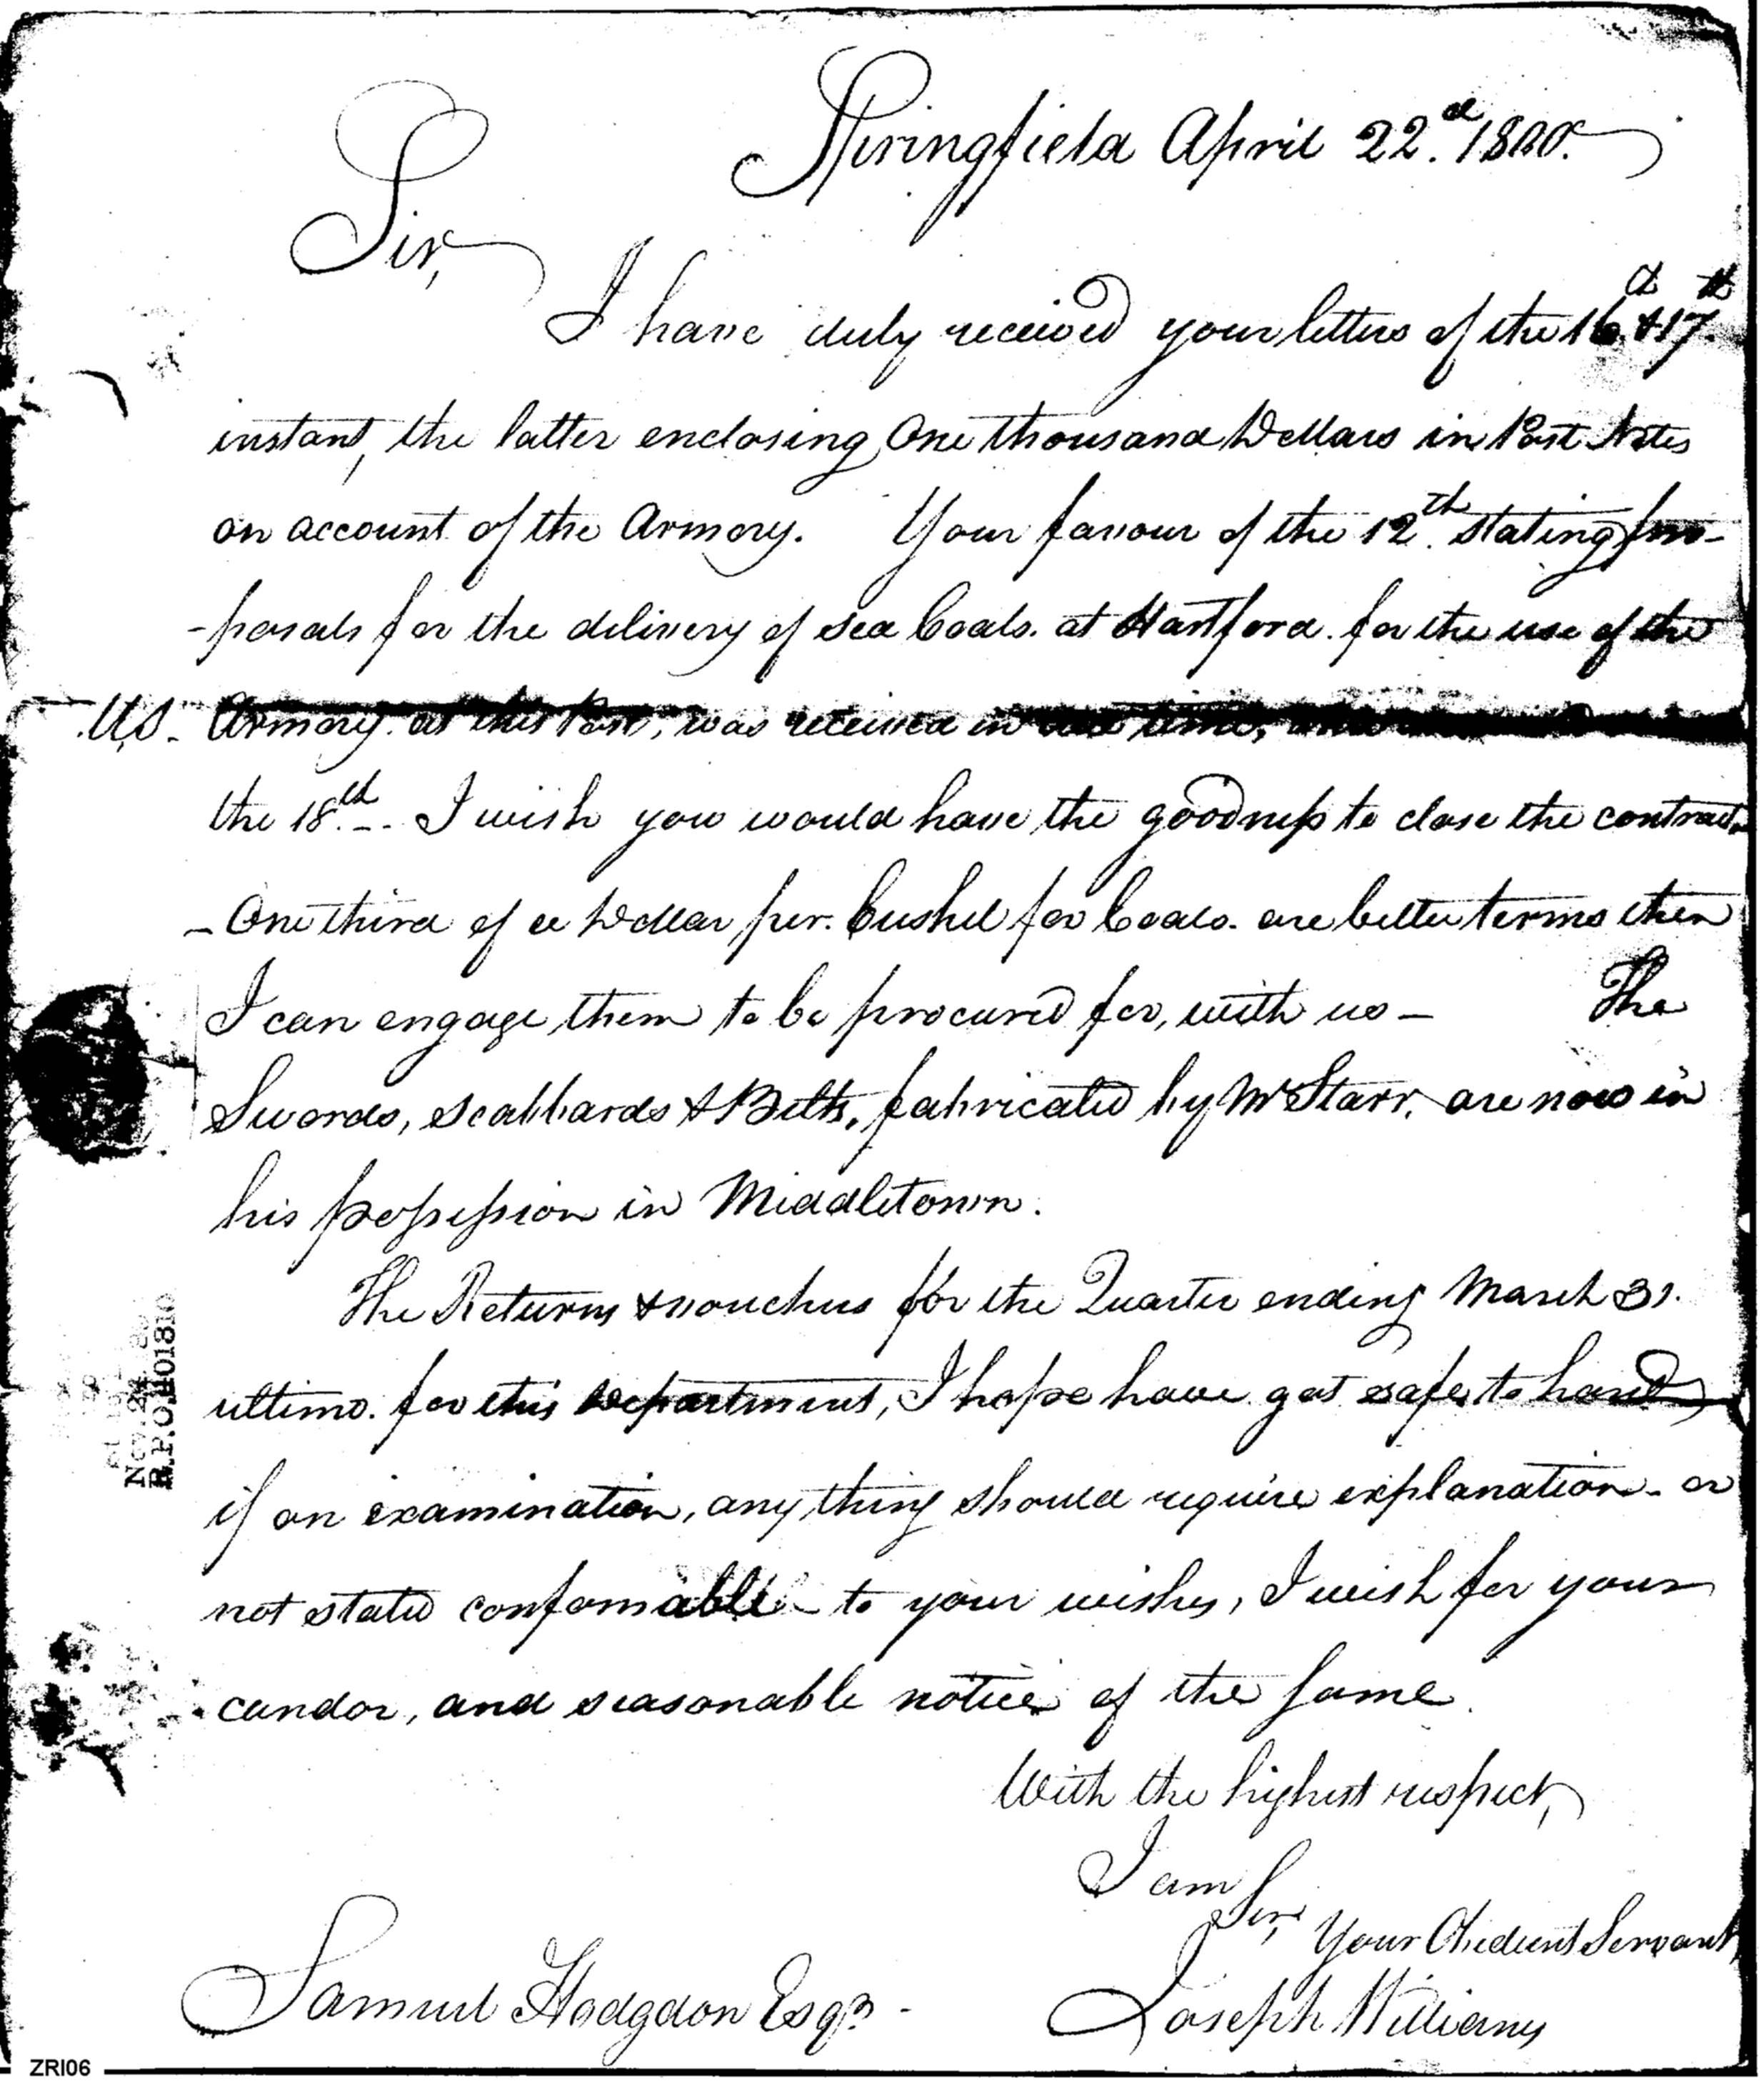 Springfield April 22.d 1800.
Sir,
I have duly received your letters of the 16th & 17th
instant, the latter enclosing One thousand Dollars in Post Notes
on account of the Armory. Your favour of the 12th. stating pro-
-posals for the delivery of Sea Coals. at Hartford. for the use of the
U.S. Armory. at this Post, was received in due time,
the 18th. - I wish you would have the goodness to close the contract,
- One third of a Dollar per. bushel for Coals. are better terms then
I can engage them to be procured for, with us - The
Swords, Scabbards & Belts, fabricated by Mr Starr, are now in
his possession in Middletown.
The Returns & vouchers for the Quarter ending March 31.
ultimo. for this Department, I hope have got safe to hand,
if on examination, any thing should require explanation - or
not stated conformable - to your wishes, I wish for your
candor, and seasonable notice of the same.
With the highest respect,
I am
Sir,
Your Obedient Servant,
Samuel Hodgdon Esqr.
Joseph Williams
Nov. 24
R.P.O. 101810
ZRI06